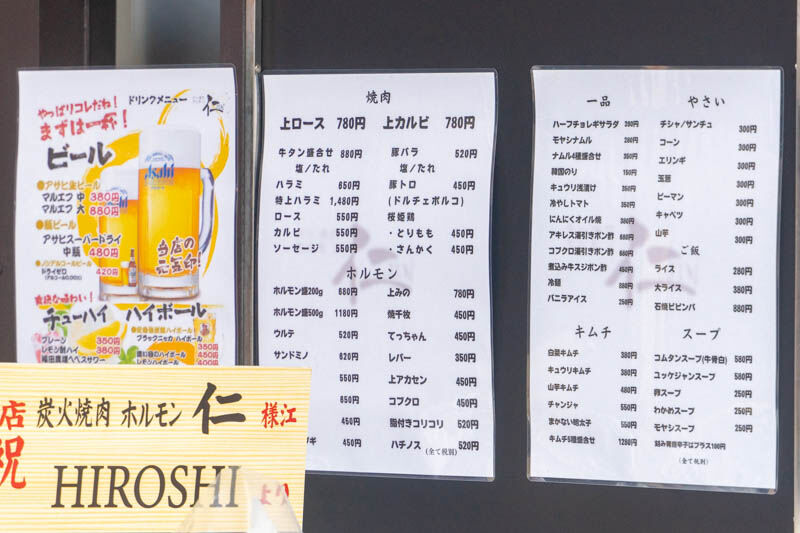 やっぱりコレだね!
まずは一杯!
ドリンクメニュー
仁
ビール
●アサヒ生ビール
マルエフ 中 380円
マルエフ 大 880円
●瓶ビール
アサヒスーパードライ
中瓶 480円
●ノンアルコールビール
ドライゼロ 420円
(アルコール0.00%)
Asahi
当店の
元気印!
チューハイ
プレーン 350円
レモン酎ハイ 380円
ハイボール
ブラックニッカ ハイボール
350円
450円
400円
店
祝
炭火焼肉 ホルモン 仁 様江
HIROSHI より
焼肉
上ロース 780円 上カルビ 780円
牛タン盛合せ 880円
塩/たれ
ハラミ 650円
特上ハラミ 1,480円
ロース 550円
カルビ 550円
ソーセージ 550円
豚バラ 520円
塩/たれ
豚トロ 450円
(ドルチェポルコ)
桜姫鶏
・とりもも 450円
・さんかく 450円
ホルモン
ホルモン盛200g 680円
ホルモン盛500g 1180円
ウルテ 520円
サンドミノ 620円
550円
550円
450円
ギ 450円
上みの 780円
焼千枚 450円
てっちゃん 450円
レバー 350円
上アカセン 450円
コブクロ 450円
脂付きコリコリ 520円
ハチノス 520円
(全て税別)
一品
ハーフチョレギサラダ 380円
モヤシナムル 280円
ナムル4種盛合せ 350円
韓国のり
キュウリ浅漬け 350円
冷やしトマト 350円
にんにくオイル焼 380円
アキレス湯引きポン酢 660円
コブクロ湯引きポン酢 450円
煮込み牛スジポン酢 450円
冷麺 880円
バニラアイス 250円
キムチ
白菜キムチ 380円
キュウリキムチ 380円
山芋キムチ 480円
チャンジャ 550円
まかない明太子 550円
キムチ5種盛合せ 1280円
やさい
チシャ/サンチュ 300円
コーン 300円
エリンギ 300円
玉葱 300円
ピーマン 300円
キャベツ 300円
山芋 300円
ご飯
ライス 280円
大ライス 380円
石焼ビビンバ 880円
スープ
コムタンスープ(牛骨白) 580円
ユッケジャンスープ 580円
卵スープ 250円
わかめスープ 250円
モヤシスープ 250円
刻み青唐辛子はプラス100円
(全て税別)